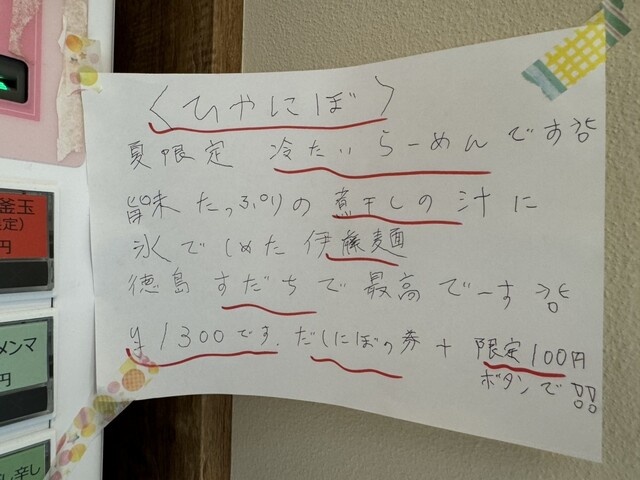 〈ひやにぼ〉
夏限定 冷たいらーめんです
旨味たっぷりの煮干しの汁に
氷でしめた伊藤麺
徳島すだちで最高でーす
¥1300です. だしにぼの券 + 限定100円
ボタンで!!
釜玉
定)
円
メンマ
円
辛し